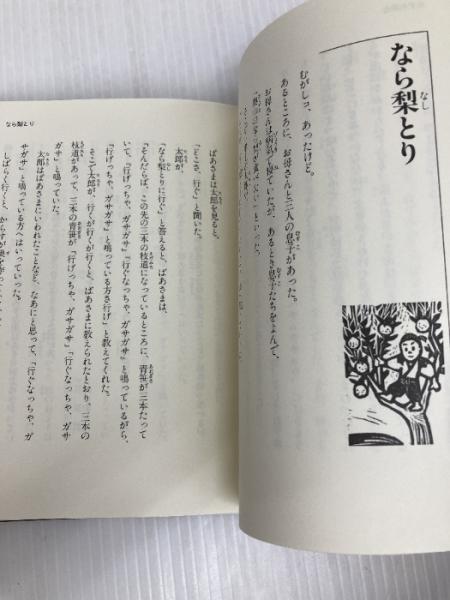 なら梨とり
なし
むがしコ、あったけど。
あるところに、お母さんと三人の息子があった。
お母さんは病気で寝ていたが、あるとき息子たちをよんで、
なら梨とり
ばあさまは太郎を見ると、
「どこさ、行ぐ」と聞いた。
太郎が、
「なら梨とりに行ぐ」と答えると、ばあさまは、
「そんだらば、この先の三本の枝道になっているところに、青笹が三本たって
いて、『行げっちゃ、ガサガサ』『行ぐなっちゃ、ガサガサ』と鳴っているがら、
『行げっちゃ、ガサガサ』と鳴っている方さ行げ」と教えてくれた。
そこで太郎が、行くが行くが行くと、ばあさまに教えられたとおり、三本の
枝道があって、三本の青笹が「行げっちゃ、ガサガサ」「行ぐなっちゃ、ガサ
ガサ」と鳴っていた。
太郎はばあさまにいわれたことなど、なあにと思って、「行ぐなっちゃ、ガ
サガサ」と鳴っている方へはいっていった。
しばらく行くと、からすが